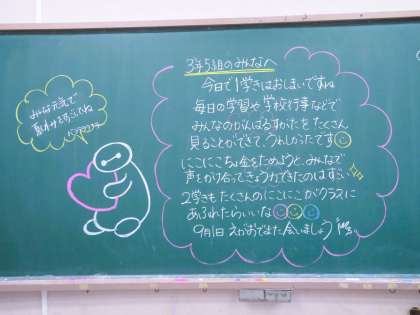 3年5組のみんなへ
今日で1学きはおしまいですね
毎日の学習や学校行事などで
みんなのがんばるすがたをたくさん
見ることができて、うれしかったです
にこにこちょ金をためようと、みんなで
声をかけ合ってきょう力できたのはすごい
2学きもたくさんのにこにこがクラスに
あふれたらいいな
9月1日 えがおでまた会いましょう
みんな元気で
夏休みを